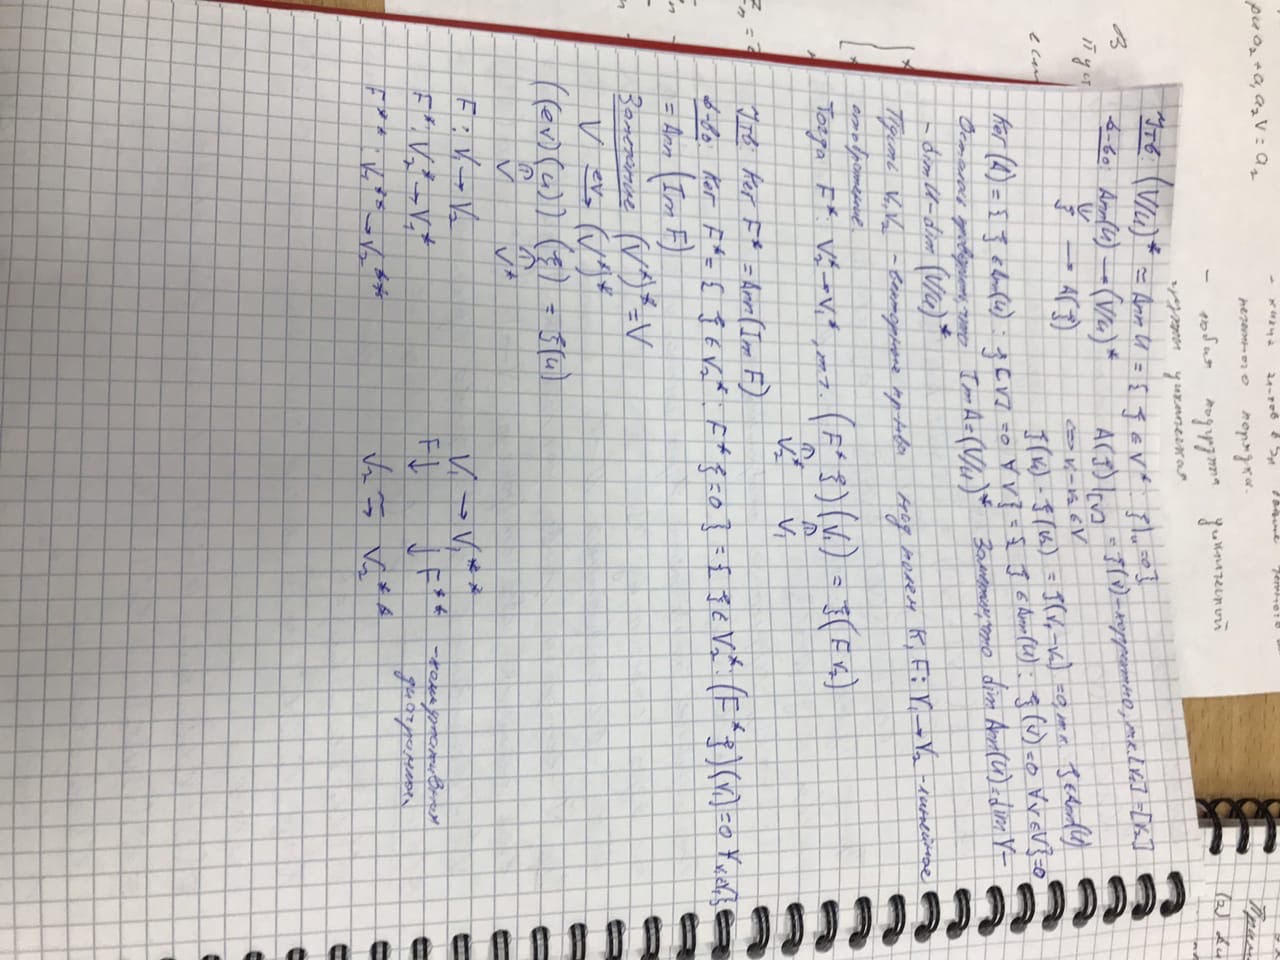 ри a₂ + a₁ a₂ V = a₂
нечетного порядка.
- любая подгруппа циклической
группы циклическая
В
Пус
если
(2)
Утв: (V/U)* ≃ Ann U = { ξ ∈ V* : ξ|_U = 0 }
Д-во: Ann(U) → (V/U)* A(ξ)|_[V] = ξ(v) - корректно, т.к. [v₁] = [v₂]
ξ → A(ξ) ⇔ v₁ - v₂ ∈ V
ξ(v₁) - ξ(v₂) = ξ(v₁ - v₂) = 0, т.к. ξ ∈ Ann(U)
Ker(A) = { ξ ∈ Ann(U) : ξ[V] = 0 ∀ V } = { ξ ∈ Ann(U) : ξ(v) = 0 ∀ v ∈ V } = 0
Осталось проверить, что Im A = (V/U)* Заметим, что dim Ann(U) = dim V -
- dim U - dim (V/U)*
Пусть V₁, V₂ - векторные пр-нва над полем K, F: V₁ → V₂ - линейное
отображение.
Тогда F*: V₂* → V₁*, т.т. (F* ξ)(v₁) = ξ(F v₂)
V₂* V₁
Утв: Ker F* = Ann(Im F)
Д-во: Ker F* = { ξ ∈ V₂* : F* ξ = 0 } = { ξ ∈ V₂* : (F* ξ)(v₁) = 0 ∀ v₁ ∈ V₁ }
= Ann (Im F)
Замечание (V*)* = V
V →^ev (V*)*
((ev)(u)) (ξ) = ξ(u)
V V*
F : V₁ → V₂ V₁ → V₁**
F*: V₂* → V₁* F ↓ ↓ F** - коммутативная
диаграмма.
F** : V₁** → V₂** V₂ ≃→ V₂**